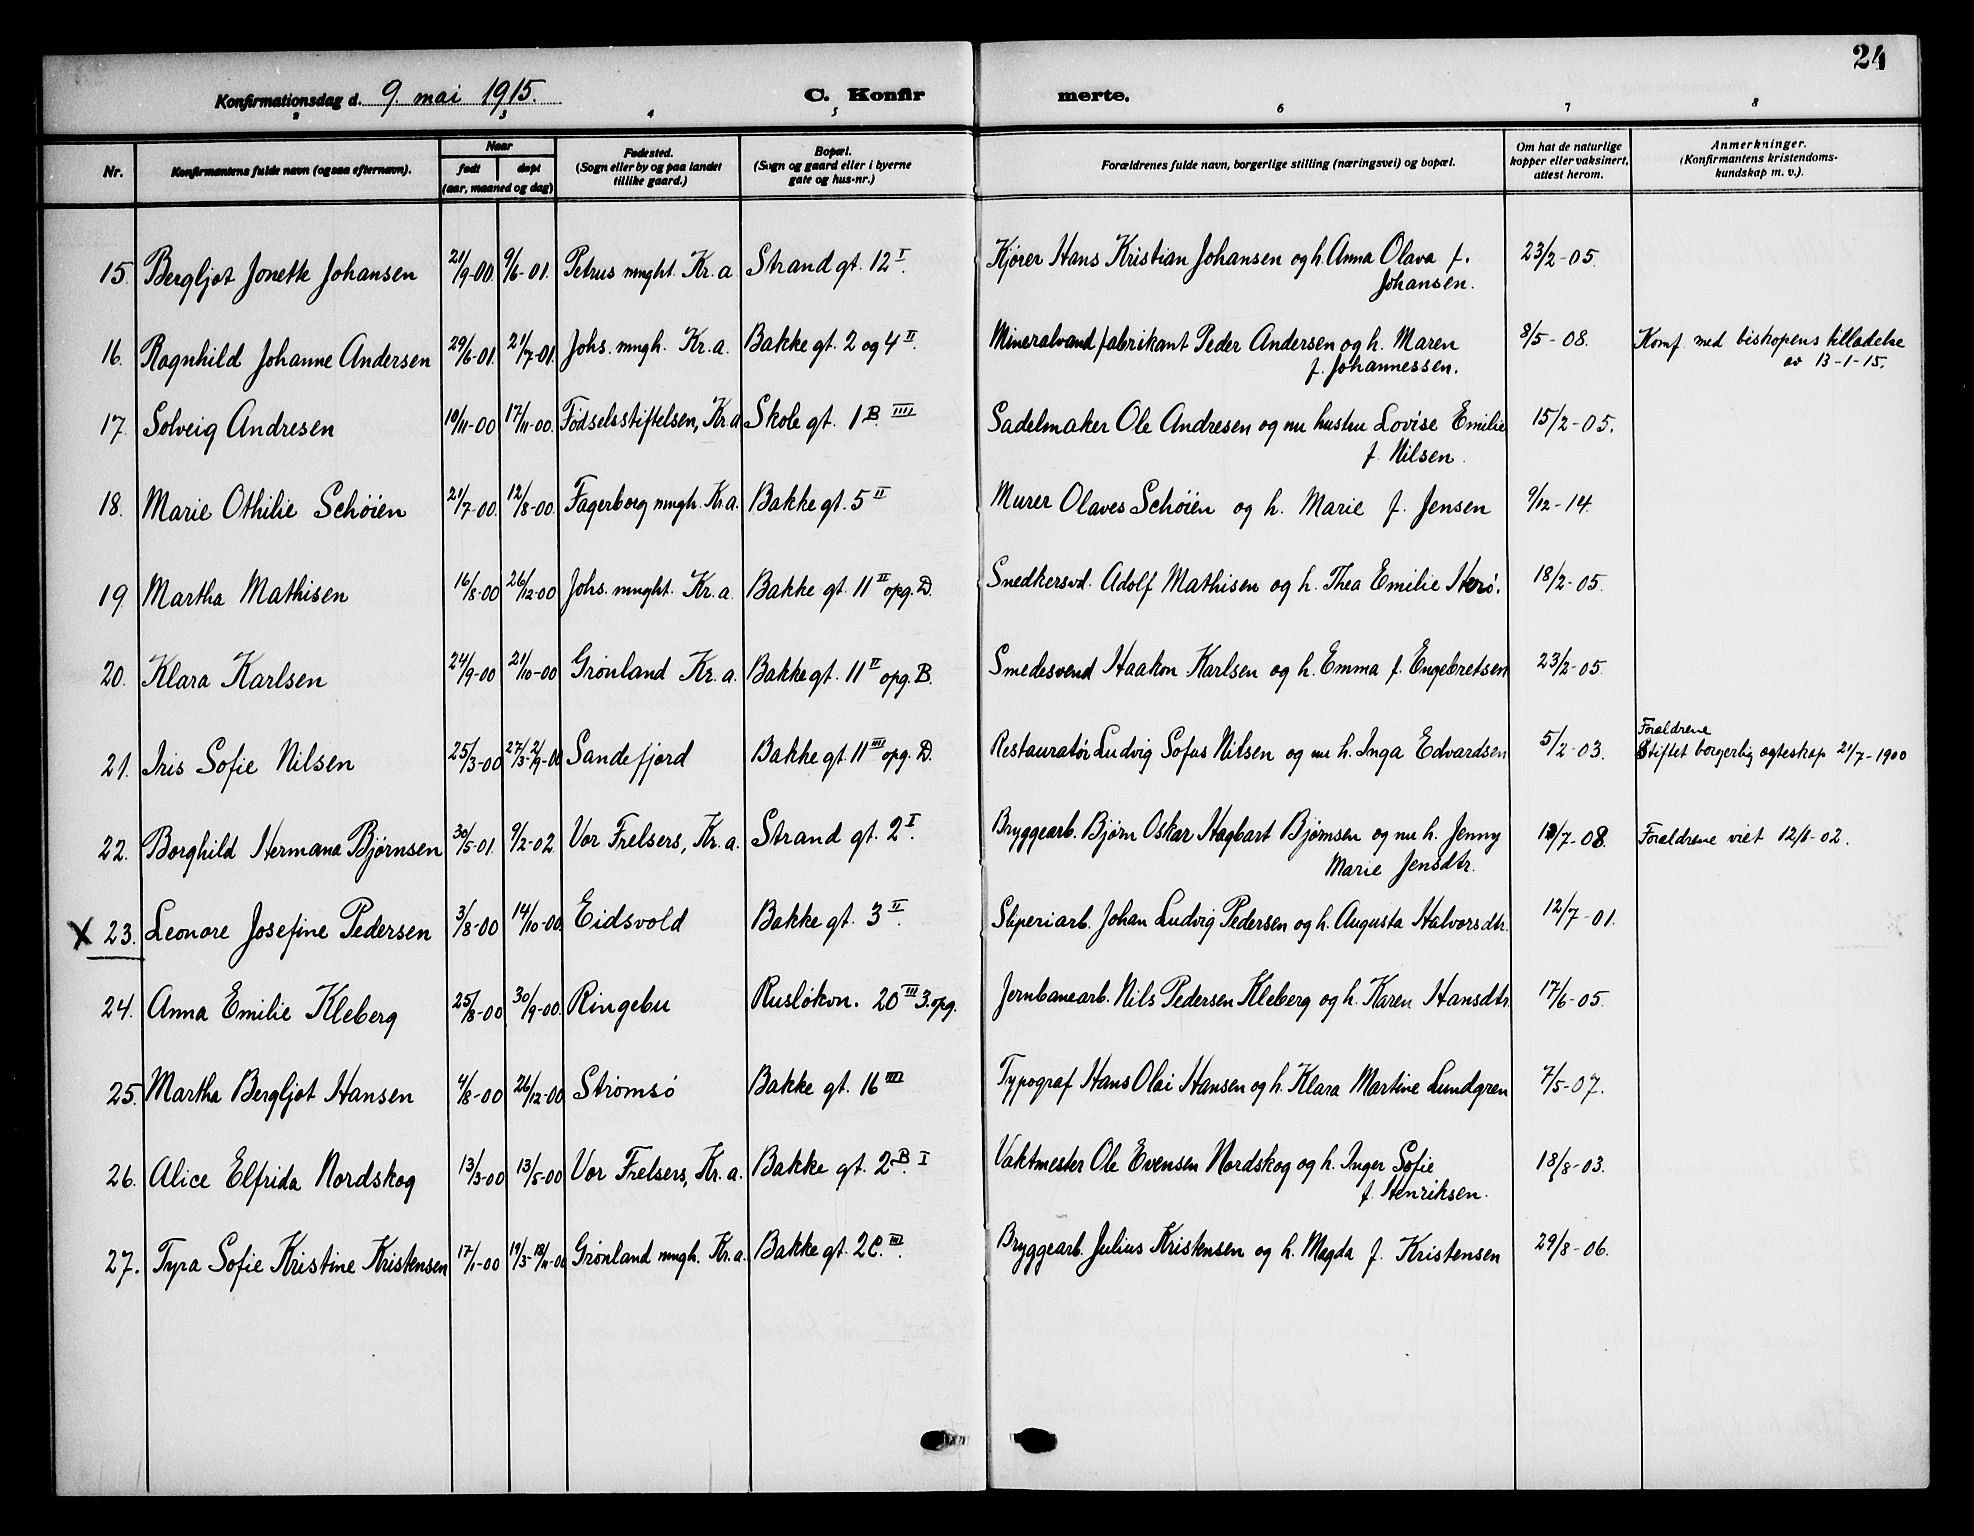 24
Konfirmationsdag d. 9. mai 1915. C. Konfir merte.
2 3 4 5 6 7 8
Nr. Konfirmantens fulde navn (ogsaa efternavn). Naar født døpt (aar, maaned og dag) Fødested. (Sogn eller by og paa landet tillike gaard.) Bopæl. (Sogn og gaard eller i byerne gate og hus-nr.) Forældrenes fulde navn, borgerlige stilling (næringsvei) og bopæl. Om hat de naturlige kopper eller vaksinert, attest herom. Anmerkninger. (Konfirmantens kristendoms- kundskap m. v.).
15. Bergljot Jonette Johansen 21/9-00. 9/6-01. Petrus mnght. Kr.a Strand gt. 12 I. Kjører Hans Kristian Johansen og h. Anna Olava f. 23/2-05.
Johansen.
16. Ragnhild Johanne Andersen 29/6-01. 21/7-01. Johs. mngh. Kr.a. Bakke gt. 2 og 4 II. Mineralvandfabrikant Peder Andersen og h. Maren 8/5-08. Konf. med biskopens tilladelse
f. Johannessen. av 13-1-15.
17. Solveig Andresen 19/11-00 17/11-00. Fødselsstiftelsen, Kr.a Skole gt. 1 B. IIII Sadelmaker Ole Andresen og nu hustru Lovise Emilie 15/2-05.
f. Nilsen.
18. Marie Othilie Schøien 21/7-00. 12/8-00. Fagerborg mngh. Kr.a. Bakke gt. 5 II Murer Olaves Schøien og h. Marie f. Jensen 9/12-14.
19 Martha Mathisen 16/8-00 26/12-00 Johs. mnght. Kr.a. Bakke gt. 11 II opg. D. Snedkersvd. Adolf Mathisen og h. Thea Emilie Herø. 18/2-05.
20. Klara Karlsen 24/9-00 21/10-00 Grønland Kr.a. Bakke gt. 11 II opg. B. Smedesvend Haakon Karlsen og h. Emma f. Engebretsen 23/2-05.
Forældrene
21. Iris Sofie Nilsen 25/3-00 27/3-2/9-00 Sandefjord Bakke gt. 11 III opg. D. Restauratør Ludvig Sofus Nilsen og nu h. Inga Edvardsen 5/2-03. Stiftet borgerlig egteskap 21/7-1900
22. Borghild Hermana Bjørnsen 30/5-01. 9/2-02. Vor Frelsers, Kr.a. Strand gt. 2 I. Bryggearb. Bjørn Oskar Hagbart Bjørnsen og nu h. Jenny /7-08. Forældrene viet 12/1-02.
Marie Jensdtr.
X 23. Leonore Josefine Pedersen 3/8-00 14/10-00. Eidsvold Bakke gt. 3 II. Sliperiarb. Johan Ludvig Pedersen og h. Augusta Halvorsdtr. 12/7-01.
24. Anna Emilie Kleberg 25/8-00 30/9-00. Ringebu Rusløkvn. 20 III 3. opg. Jernbanearb. Nils Pedersen Kleberg og h. Karen Hansdtr. 17/6-05.
25. Martha Bergljot Hansen 4/8-00 26/12-00 Strømsø Bakke gt. 16 III Typograf Hans Olai Hansen og h. Klara Martine Lundgren 7/5-07.
26. Alice Elfrida Nordskog 13/3-00 13/5-00 Vor Frelsers, Kr.a. Bakke gt. 2 B. I Vaktmester Ole Evensen Nordskog og h. Inger Sofie 18/8-03.
f. Henriksen.
27. Tyra Sofie Kristine Kristensen 17/1-00 19/3-18/11-00 Grønland mngh. Kr.a. Bakke gt. 2 C. III. Bryggearb. Julius Kristensen og h. Magda f. Kristensen 29/8-06.